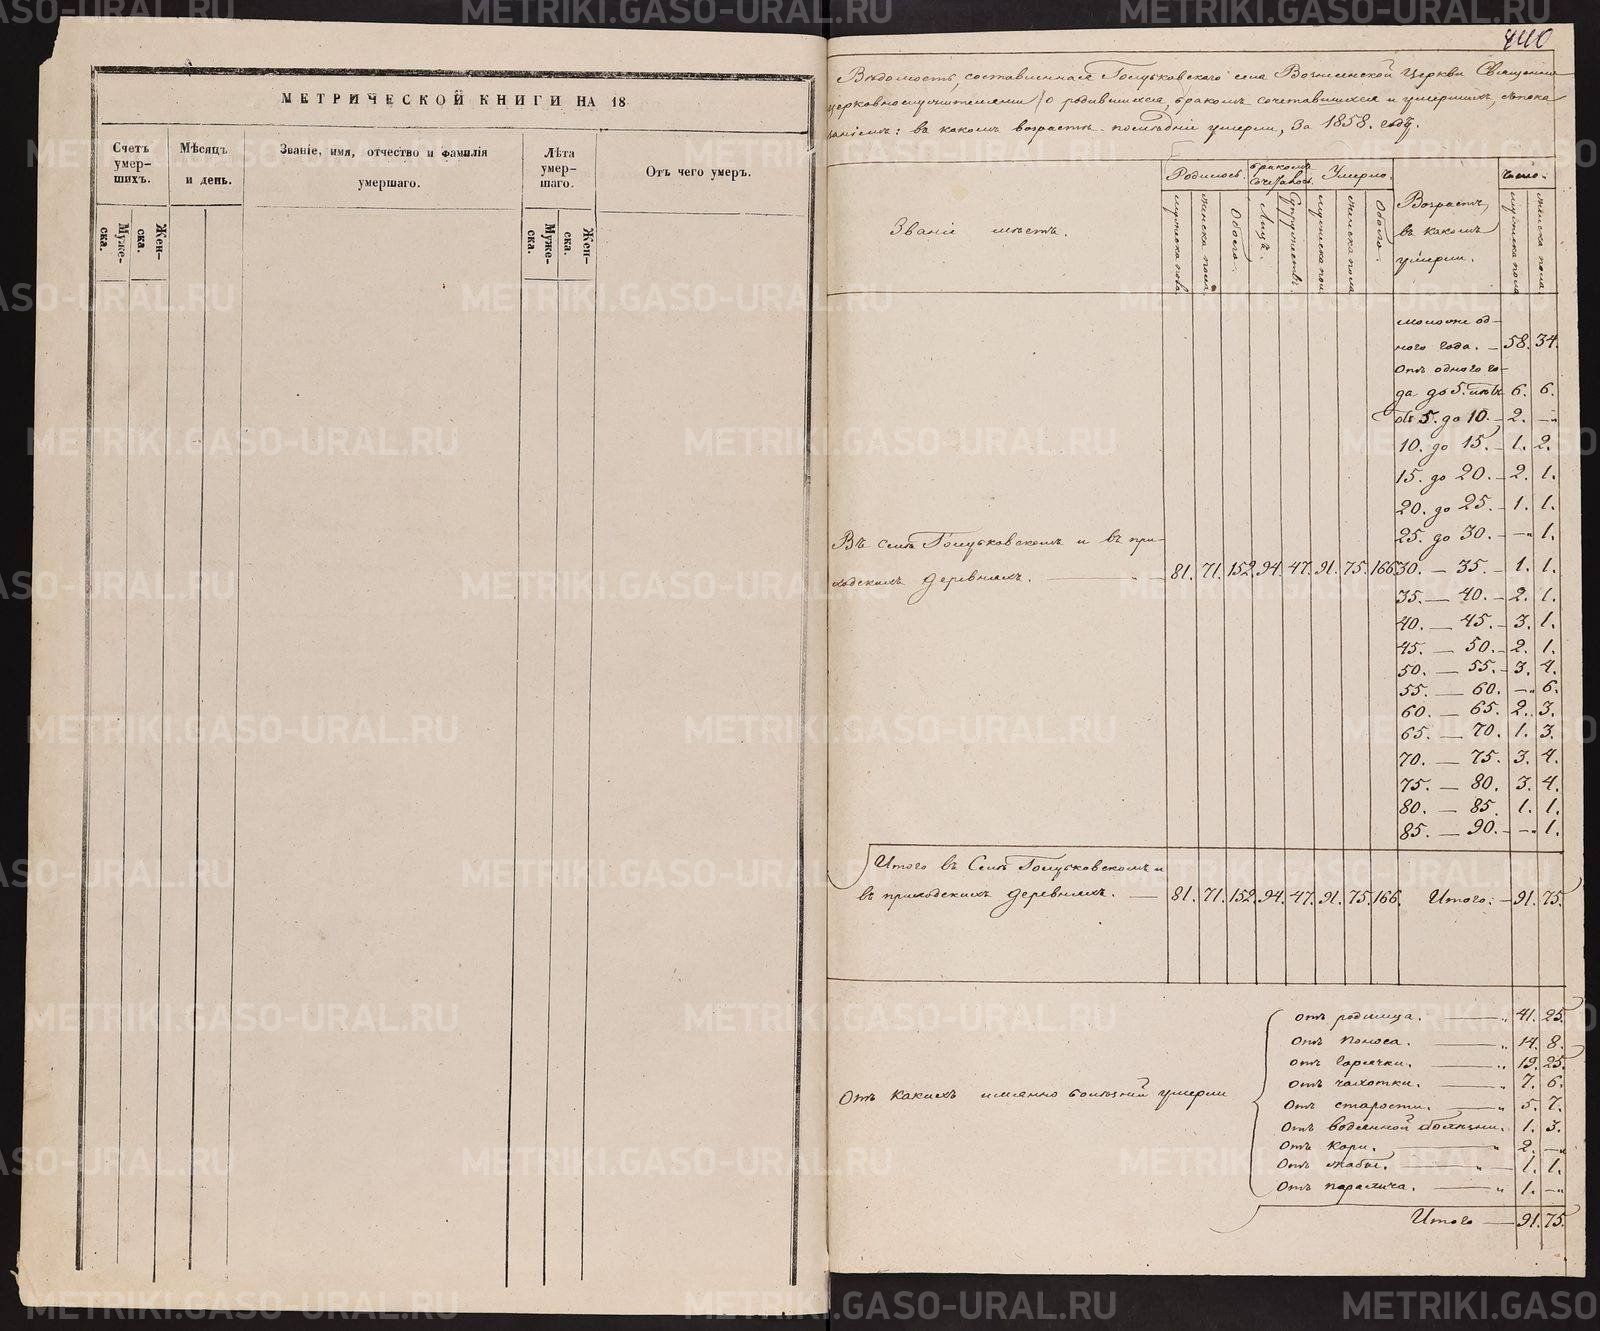 МЕТРИЧЕСКОЙ КНИГИ НА 18
Счетъ умер-шихъ.
Мѣсяцъ и день.
Званіе, имя, отчество и фамилія умершаго.
Лѣта умер-шаго.
Отъ чего умеръ.
Муже-ска.
Жен-ска.
Муже-ска.
Жен-ска.
440
Вѣдомость, составленная Голубковскаго села Вознесенской Церкви Священно
церковнослужителями о родившихся, бракомъ сочетавшихся и умершихъ, съ пока
заніемъ: въ какомъ возрастѣ послѣдніе умерли, за 1858. годъ.
Званіе мѣстъ.
Родилось.
Бракомъ сочеталось.
Умерло.
Возрастъ, въ какомъ умерли.
Число.
мужеска пола
женска пола
Обоего.
Лицъ.
Супружествъ
мужеска пол
женска пола
Обоего.
мужеска пола
женска пола.
моложе од-
ного года. — 58. 34.
Отъ одного го-
да до 5. лѣтъ 6. 6.
отъ 5. до 10. — 2. —„
10. до 15. — 1. 2.
15. до 20. — 2. 1.
20. до 25. — 1. 1.
25. до 30. — —„ 1.
Въ селѣ Голубковскомъ и въ при-
ходскихъ деревняхъ. — 81. 71. 152. 94. 47. 91. 75. 166.
30. — 35. — 1. 1.
35. — 40. — 2. 1.
40. — 45. — 3. 1.
45. — 50. — 2. 1.
50. — 55. — 3. 4.
55. — 60. —„ 6.
60. — 65. 2. 3.
65. — 70. 1. 3.
70. — 75. 3. 4.
75. — 80. 3. 4.
80. — 85. 1. 1.
85. — 90. — —„ 1.
Итого въ Селѣ Голубковскомъ и
въ приходскихъ деревняхъ. — 81. 71. 152. 94. 47. 91. 75. 166. Итого: — 91. 75.
Отъ какихъ именно болѣзней умерли
отъ родимца. —„ 41. 25.
отъ поноса. —„ 14. 8.
отъ горячки. —„ 19. 25.
отъ чахотки. —„ 7. 6.
отъ старости. —„ 5. 7.
отъ водянной болѣзни. 1. 3.
отъ кори. —„ 2. —„
отъ жабы. —„ 1. 1.
отъ паралича. —„ 1. —„
Итого — 91. 75.
METRIKI.GASO-URAL.RU